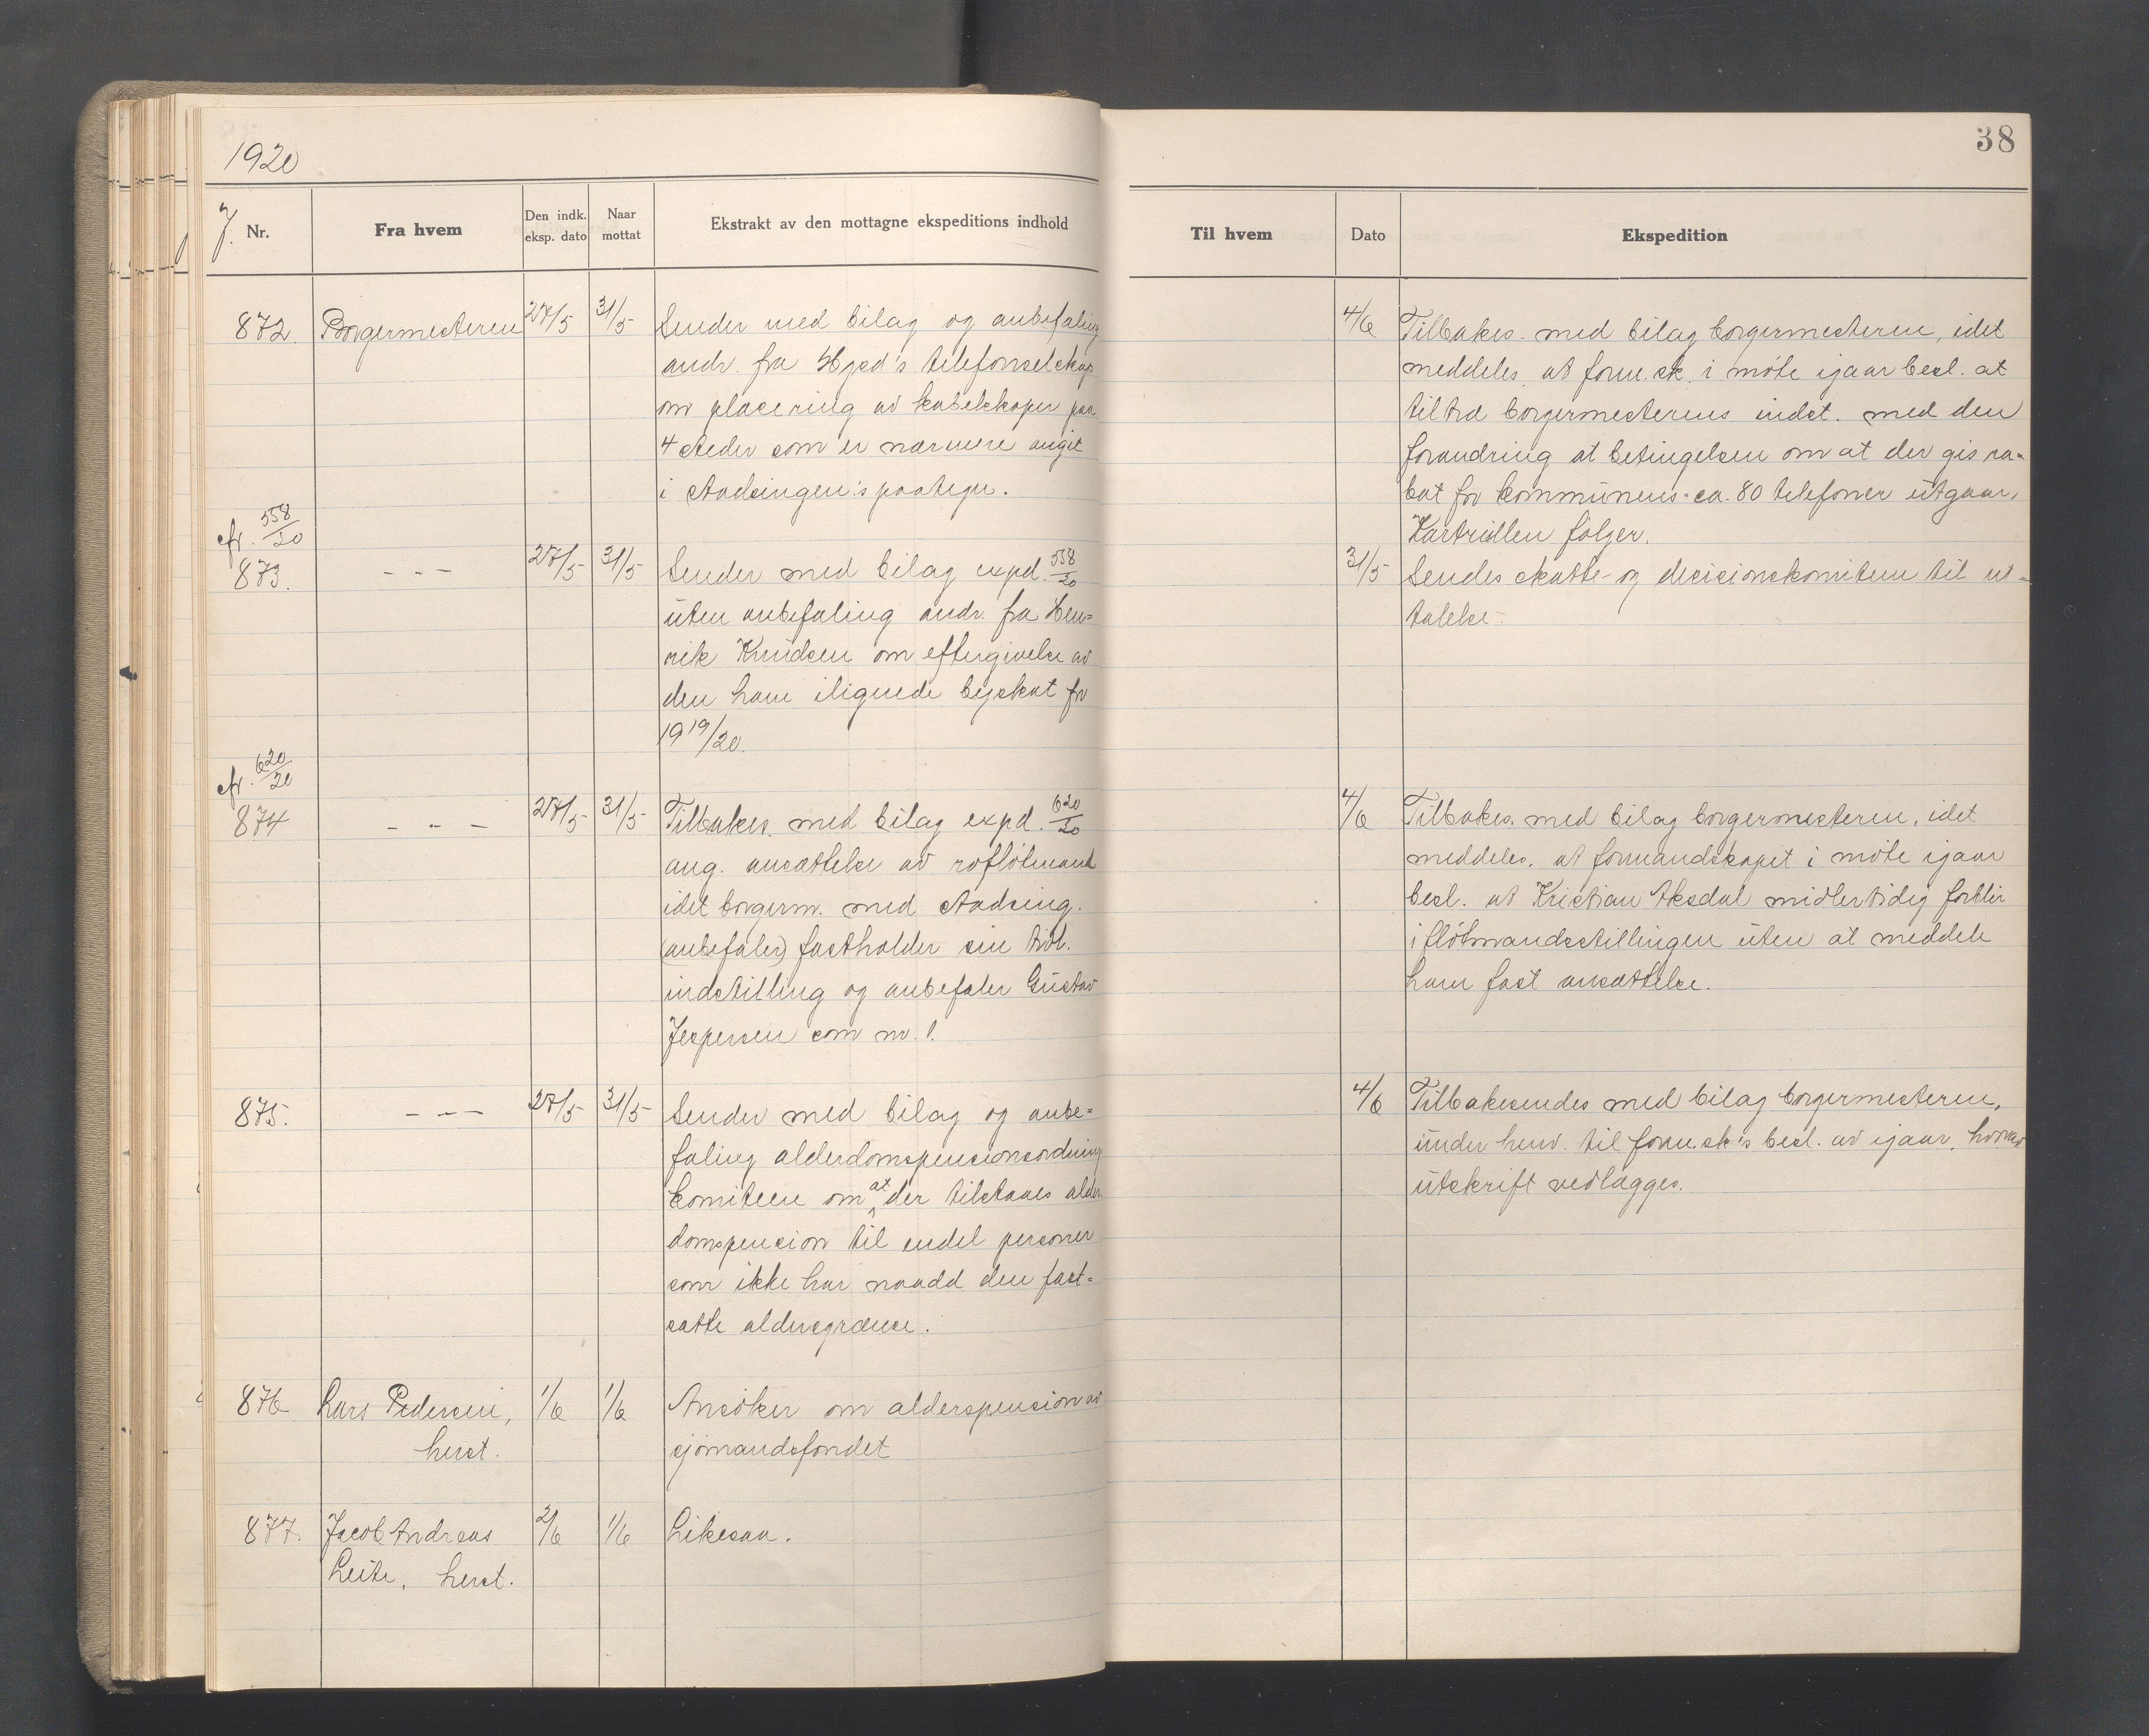 1920
38
J. Nr.
Fra hvem
Den indk. eksp. dato
Naar mottat
Ekstrakt av den mottagne ekspeditions indhold
Til hvem
Dato
Ekspedition
872. Borgermesteren 27/5 31/5 Sender med bilag og anbefaling
andr. fra Hgsd's telefonselskap
om placering av kabelskaper paa
4 steder som er nærmere angit
i stadsingen:s paategn.
4/6 Tilbakes. med bilag borgermesteren, idet
meddeles, at form.sk. i møte igaar besl. at
tiltræ borgermesterens indst. med den
forandring at betingelsen om at der gis ra-
bat for kommunens ca. 80 telefoner utgaar.
Kartrullen følger.
cfr. 558/20
873. - " - 27/5 31/5 Sender med bilag expd. 558/20
uten anbefaling andr. fra Hen-
rik Knudsen om eftergivelse av
den ham ilignede byskat for
1919/20.
31/5 Sendes skatte- og decisionskomiteen til ut-
talelse.
cfr. 620/20
874 - " - 27/5 31/5 Tilbakes. med bilag expd. 620/20
ang. ansættelse av rofløtmand
idet borgerm. med stadsing.
(anbefaler) fastholder sin tidl.
indstilling og anbefaler Gustav
Jespersen som nr. 1.
4/6 Tilbakes. med bilag borgermesteren, idet
meddeles, at formandskapet i møte igaar
besl. at Kristian Aksdal midlertidig forblir
i fløtmandsstillingen uten at meddele
ham fast ansættelse.
875. - " - 27/5 31/5 Sender med bilag og anbe-
faling alderdomspensionsordning
komiteen om at der tilstaaes alder-
domspension til endel personer
som ikke har naadd den fast-
satte aldersgrænse.
4/6 Tilbakesendes med bilag borgermesteren,
under henv. til form.sk's besl. av igaar, hvorav
utskrift vedlægges.
876 Lars Pedersen, 1/6 1/6 Ansøker om alderspension av
herst. sjømandsfondet
877. Jacob Andreas 2/6 1/6 Likesaa.
Leite, herst.